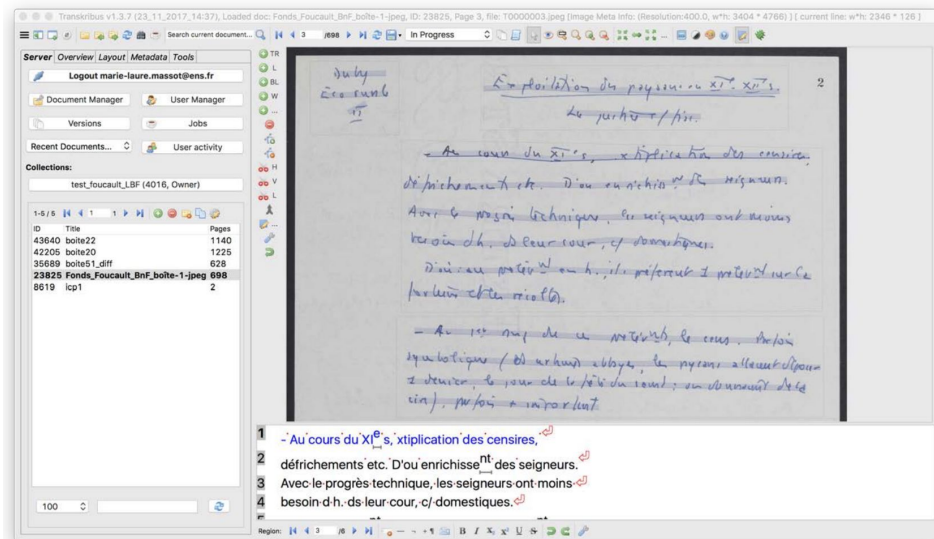 Transkribus v1.3.7 (23_11_2017_14:37), Loaded doc: Fonds_Foucault_BnF_boîte-1-jpeg, ID: 23825, Page 3, file: T0000003.jpeg [Image Meta Info: (Resolution:400.0, w*h: 3404 * 4766) ] [ current line: w*h: 2346 * 126 ]
Search current document...
3 /698
In Progress
Server Overview Layout Metadata Tools
Logout marie-laure.massot@ens.fr
Document Manager User Manager
Versions Jobs
Recent Documents... User activity
Collections:
test_foucault_LBF (4016, Owner)
1-5 / 5 1 1
ID Title Pages
43640 boite22 1140
42205 boite20 1225
35689 boite51_diff 628
23825 Fonds_Foucault_BnF_boîte-1-jpeg 698
8619 icp1 2
100
TR
L
BL
W
...
H
V
L
...
Duby
Eco rurale
II
Exploitation du paysan au XIe. XIIe s.
2
La justice c/ fisc.
- Au cours du XIe s, xtiplication des censires,
défrichements etc. D'ou enrichisse nt des seigneurs.
Avec le progrès technique, les seigneurs ont moins
besoin d h. ds leur cour, c/ domestiques.
préfèrent
récoltes.
- Au 1er rang de ce, le cens. Parfois
symbolique
1 denier, le jour de la fête du saint
cire), parfois + important
1 - Au cours du XIe s, xtiplication des censires,
2 défrichements etc. D'ou enrichissent des seigneurs.
3 Avec le progrès technique, les seigneurs ont moins
4 besoin d h. ds leur cour, c/ domestiques.
Region: 3 /6 B I X₂ X² U S